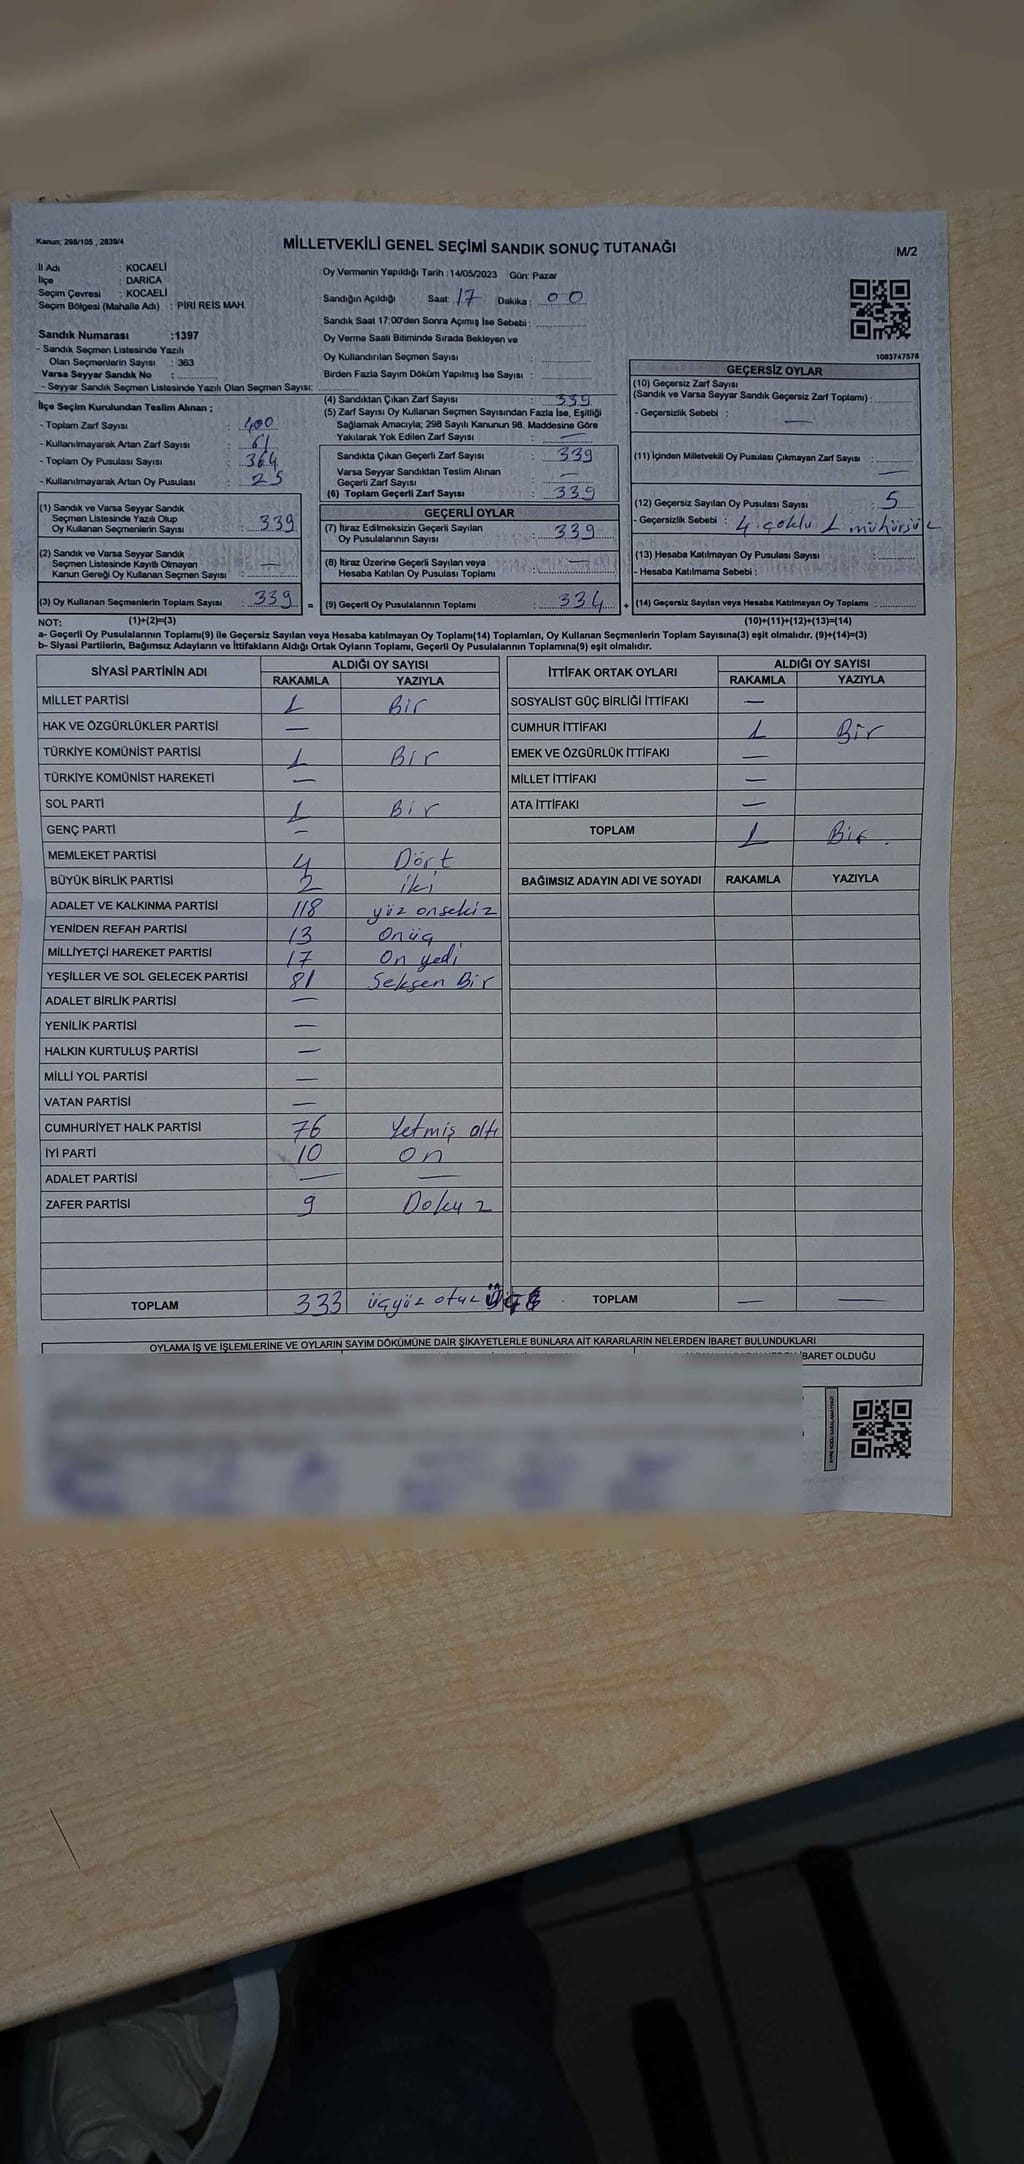 Kanun: 298/105 , 2839/4
MİLLETVEKİLİ GENEL SEÇİMİ SANDIK SONUÇ TUTANAĞI
M/2
İl Adı : KOCAELİ
İlçe : DARICA
Seçim Çevresi : KOCAELİ
Seçim Bölgesi (Mahalle Adı) : PİRİ REİS MAH.
Sandık Numarası :1397
- Sandık Seçmen Listesinde Yazılı
Olan Seçmenlerin Sayısı : 363
Varsa Seyyar Sandık No :
- Seyyar Sandık Seçmen Listesinde Yazılı Olan Seçmen Sayısı:
Oy Vermenin Yapıldığı Tarih : 14/05/2023 Gün: Pazar
Sandığın Açıldığı Saat: 17 Dakika : 00
Sandık Saat 17:00'den Sonra Açımış İse Sebebi :
Oy Verme Saati Bitiminde Sırada Bekleyen ve
Oy Kullandırılan Seçmen Sayısı :
Birden Fazla Sayım Döküm Yapılmış İse Sayısı :
1083747578
İlçe Seçim Kurulundan Teslim Alınan ;
- Toplam Zarf Sayısı : 400
- Kullanılmayarak Artan Zarf Sayısı : 61
- Toplam Oy Pusulası Sayısı : 364
- Kullanılmayarak Artan Oy Pusulası : 25
(1) Sandık ve Varsa Seyyar Sandık
Seçmen Listesinde Yazılı Olup
Oy Kullanan Seçmenlerin Sayısı : 339
(2) Sandık ve Varsa Seyyar Sandık
Seçmen Listesinde Kayıtlı Olmayan
Kanun Gereği Oy Kullanan Seçmen Sayısı : —
(3) Oy Kullanan Seçmenlerin Toplam Sayısı : 339 =
(4) Sandıktan Çıkan Zarf Sayısı : 339
(5) Zarf Sayısı Oy Kullanan Seçmen Sayısından Fazla İse, Eşitliği
Sağlamak Amacıyla; 298 Sayılı Kanunun 98. Maddesine Göre
Yakılarak Yok Edilen Zarf Sayısı : —
Sandıkta Çıkan Geçerli Zarf Sayısı : 339
Varsa Seyyar Sandıktan Teslim Alınan
Geçerli Zarf Sayısı : —
(6) Toplam Geçerli Zarf Sayısı : 339
GEÇERLİ OYLAR
(7) İtiraz Edilmeksizin Geçerli Sayılan
Oy Pusulalarının Sayısı : 339
(8) İtiraz Üzerine Geçerli Sayılan veya
Hesaba Katılan Oy Pusulası Toplamı : —
(9) Geçerli Oy Pusulalarının Toplamı : 334 +
GEÇERSİZ OYLAR
(10) Geçersiz Zarf Sayısı
(Sandık ve Varsa Seyyar Sandık Geçersiz Zarf Toplamı) :
- Geçersizlik Sebebi : —
(11) İçinden Milletvekili Oy Pusulası Çıkmayan Zarf Sayısı : —
(12) Geçersiz Sayılan Oy Pusulası Sayısı : 5
- Geçersizlik Sebebi : 4 çoklu 1 mühürsüz
(13) Hesaba Katılmayan Oy Pusulası Sayısı :
- Hesaba Katılmama Sebebi :
(14) Geçersiz Sayılan veya Hesaba Katılmayan Oy Toplamı :
NOT: (1)+(2)=(3) (10)+(11)+(12)+(13)=(14)
a- Geçerli Oy Pusulalarının Toplamı(9) ile Geçersiz Sayılan veya Hesaba katılmayan Oy Toplamı(14) Toplamları, Oy Kullanan Seçmenlerin Toplam Sayısına(3) eşit olmalıdır. (9)+(14)=(3)
b- Siyasi Partilerin, Bağımsız Adayların ve İttifakların Aldığı Ortak Oyların Toplamı, Geçerli Oy Pusulalarının Toplamına(9) eşit olmalıdır.
SİYASİ PARTİNİN ADI ALDIĞI OY SAYISI
RAKAMLA YAZIYLA
MİLLET PARTİSİ 1 Bir
HAK VE ÖZGÜRLÜKLER PARTİSİ —
TÜRKİYE KOMÜNİST PARTİSİ 1 Bir
TÜRKİYE KOMÜNİST HAREKETİ —
SOL PARTİ 1 Bir
GENÇ PARTİ —
MEMLEKET PARTİSİ 4 Dört
BÜYÜK BİRLİK PARTİSİ 2 iki
ADALET VE KALKINMA PARTİSİ 118 yüz onsekiz
YENİDEN REFAH PARTİSİ 13 Onüç
MİLLİYETÇİ HAREKET PARTİSİ 17 On yedi
YEŞİLLER VE SOL GELECEK PARTİSİ 81 Seksen Bir
ADALET BİRLİK PARTİSİ —
YENİLİK PARTİSİ —
HALKIN KURTULUŞ PARTİSİ —
MİLLİ YOL PARTİSİ —
VATAN PARTİSİ —
CUMHURİYET HALK PARTİSİ 76 Yetmiş altı
İYİ PARTİ 10 On
ADALET PARTİSİ — —
ZAFER PARTİSİ 9 Dokuz
TOPLAM 333 üçyüz otuz üç
İTTİFAK ORTAK OYLARI ALDIĞI OY SAYISI
RAKAMLA YAZIYLA
SOSYALİST GÜÇ BİRLİĞİ İTTİFAKI —
CUMHUR İTTİFAKI 1 Bir
EMEK VE ÖZGÜRLÜK İTTİFAKI —
MİLLET İTTİFAKI —
ATA İTTİFAKI —
TOPLAM 1 Bir.
BAĞIMSIZ ADAYIN ADI VE SOYADI RAKAMLA YAZIYLA
TOPLAM — —
OYLAMA İŞ VE İŞLEMLERİNE VE OYLARIN SAYIM DÖKÜMÜNE DAİR ŞİKAYETLERLE BUNLARA AİT KARARLARIN NELERDEN İBARET BULUNDUKLARI
İBARET OLDUĞU